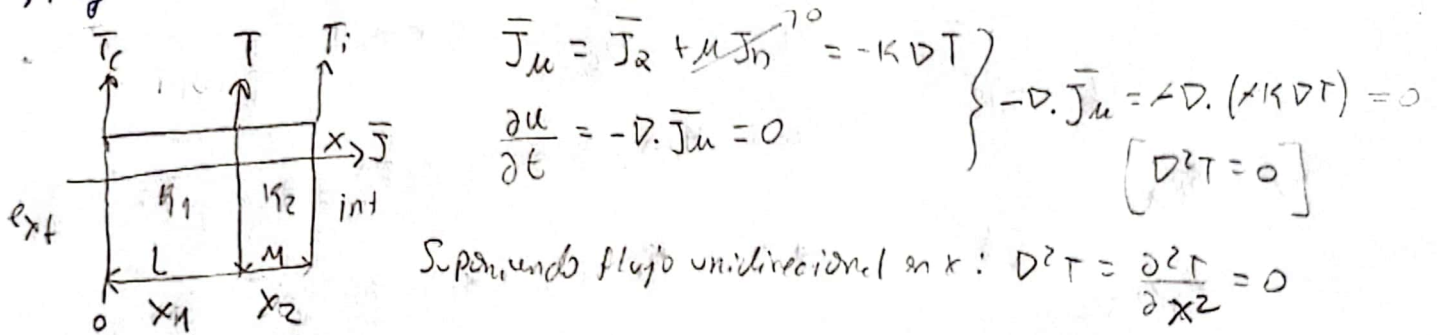 T_c T T_i
x J̄
K₁ K₂
ext int
L M
0 x₁ x₂
J̄_u = J̄_Q + μ J̄_n →0 = -K∇T
∂u/∂t = -∇·J̄_u = 0
} -∇·J̄_u = +∇·(+K∇T) = 0
[∇²T = 0]
Suponiendo flujo unidirecional en x: ∇²T = ∂²T/∂x² = 0